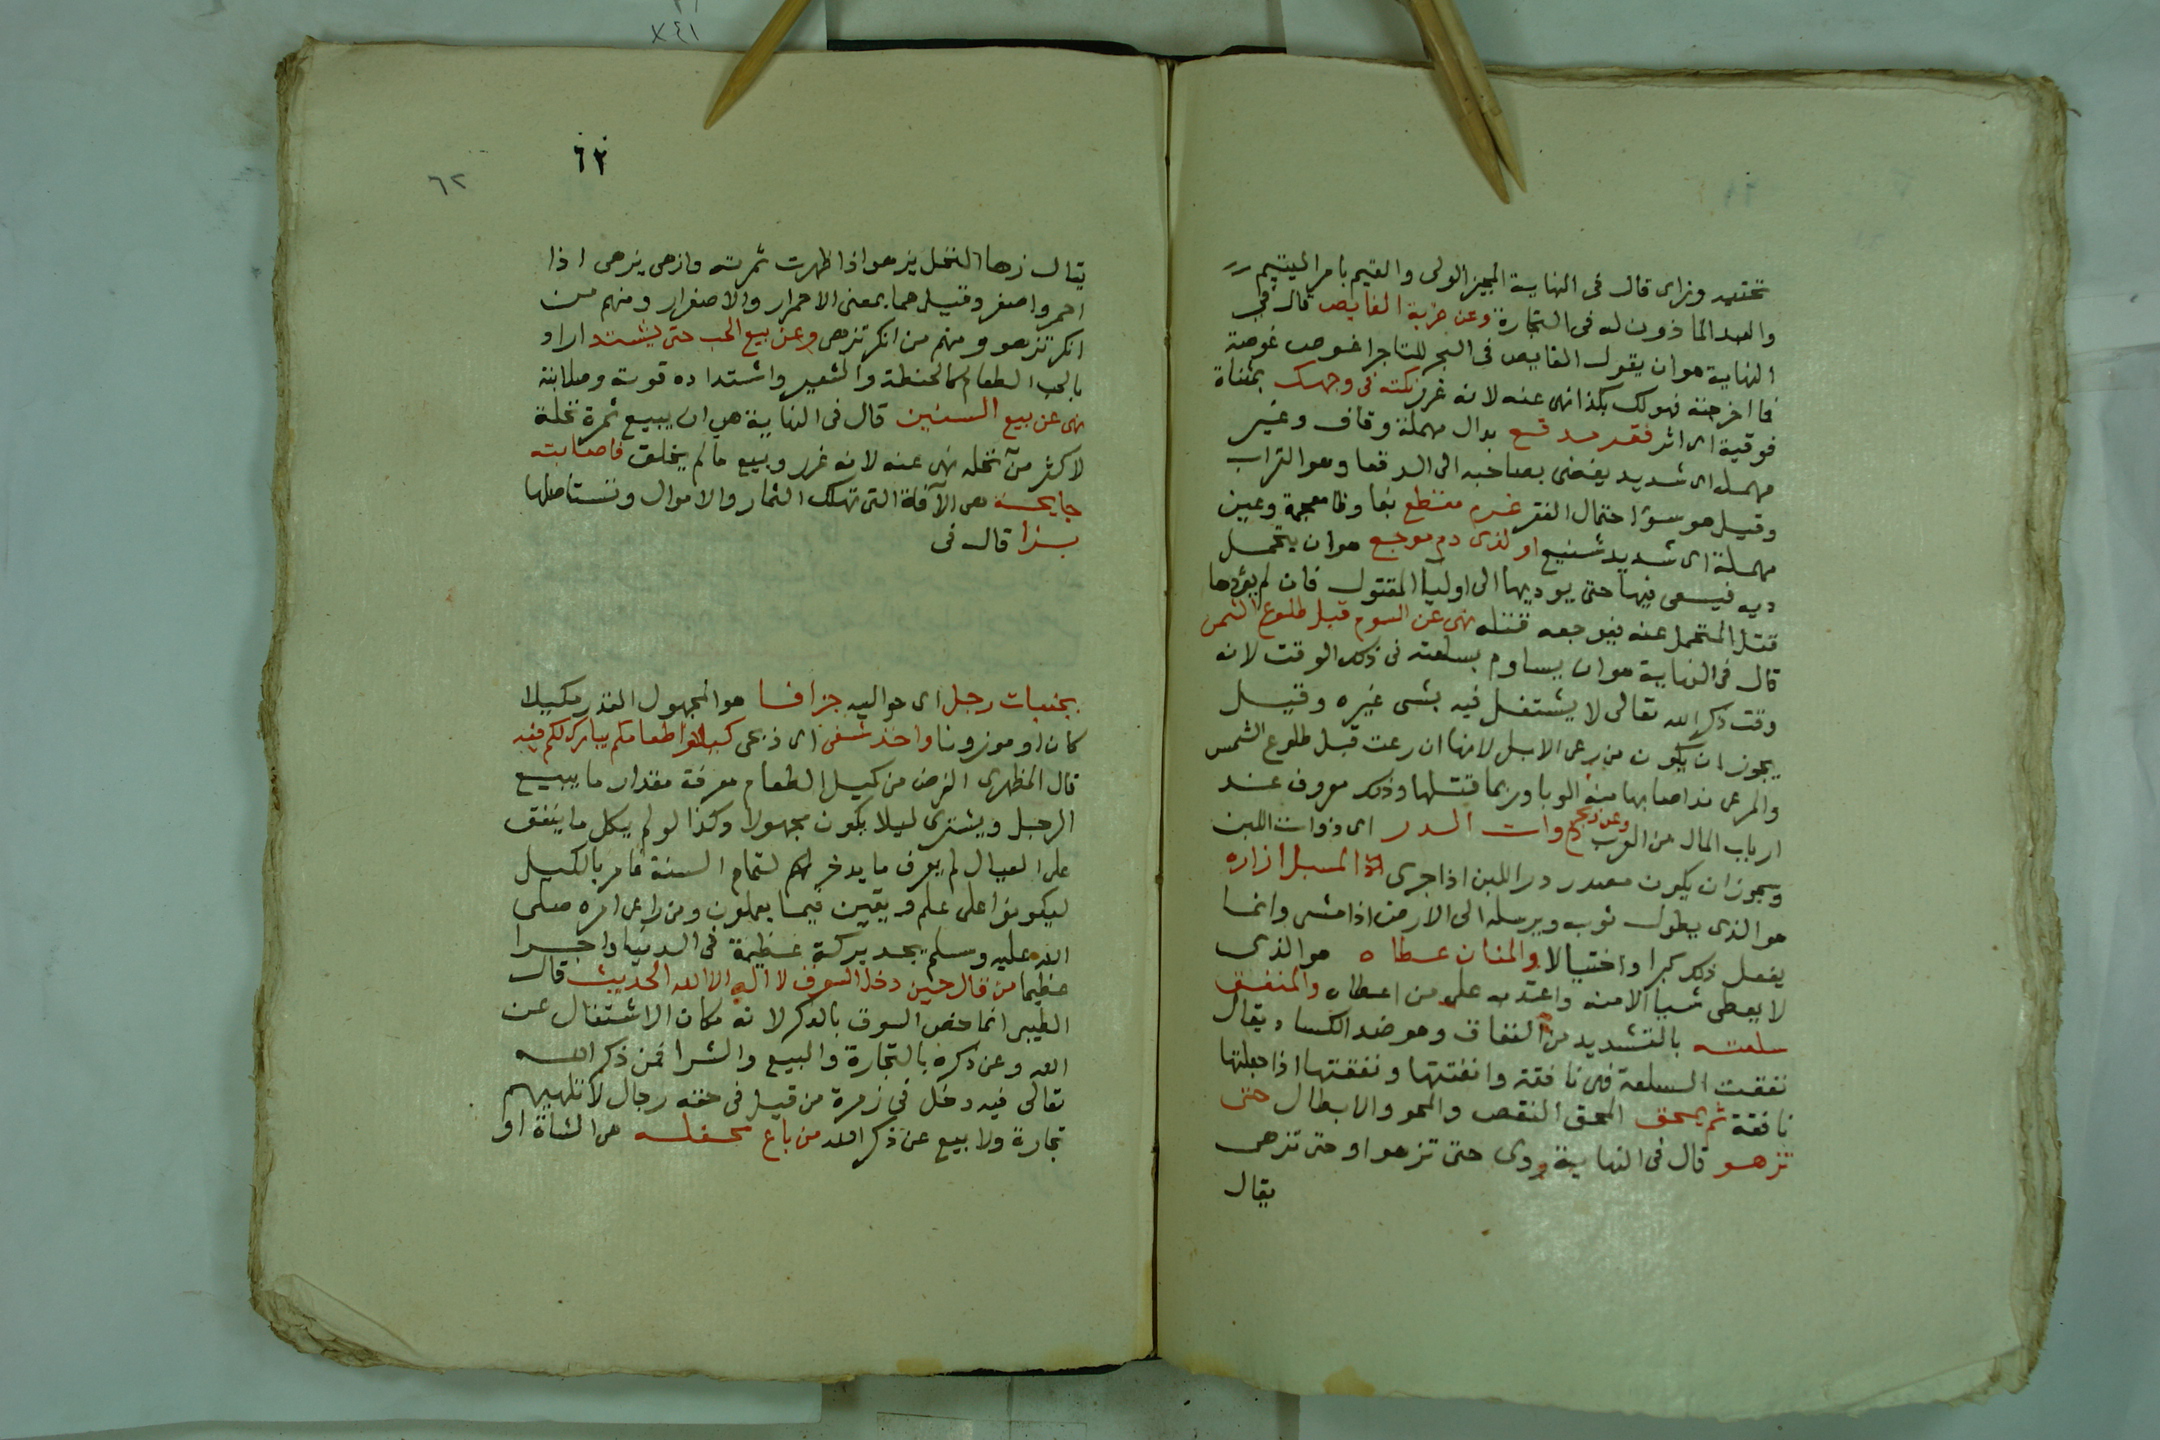 تحتيد ونزاى قال فى النهاية المجيز الولى والقيم بامر اليتيم
والعبد الماذون له فى التجارة وعن ضربة الغايص قال فى
النهاية هو ان يقول الغايص فى البحر للتاجر اغوص غوصة
فما اخرجته فهو لك بكذا نهى عنه لانه غرر نكته فى وجهك بمثناة
فوقية اى اثر فقر مدقع بدال مهملة وقاف وعين
مهملة اى شديد يفضى بصاحبه الى الدقعا وهو التراب
وقيل هو سؤ احتمال الفقر غرم مفظع بفا وظا معجمة وعين
مهملة اى شديد شنيع او لذى دم موجع هو ان يتحمل
ديه فيسعى فيها حتى يوديها الى اوليا المقتول فان لم يؤدها
قتل المتحمل عنه فيوجعه قتله نهى عن السوم قبل طلوع الشمس
قال فى النهاية هو ان يساوم بسلعته فى ذلك الوقت لانه
وقت ذكر الله تعالى لا يشتغل فيه بشى غيره وقيل
يجوز ان يكون من رعى الابل لانها ان رعت قبل طلوع الشمس
والمرعى ند اصابها منه الوبا وربما قتلها وذلك معروف عند
ارباب المال من العرب وعن ذبح ذوات الدر اى ذوات اللبن
ويجوز ان يكون مصدر در اللبن اذا جرى المسبل ازاره
هو الذى يطول ثوبه ويرسله الى الارض اذا مشى وانما
يفعل ذلك كبرا واختيالا والمنان عطاه هو الذى
لا يعطى شيا الا منه واعتد به على من اعطاه والمنفق
سلعته بالتشديد من النفاق وهو ضد الكساد يقال
نفقت السلعة فهى نافقة وانفقتها ونفقتها اذا جعلتها
نافقة ثم يمحق المحق النقص والمحو والابطال حتى
تزهو قال فى النهاية وروى حتى تزهو او حتى تزهى
يقال
٦٢
٦٢
يقال زها النخل يزهو اذا ظهرت ثمرته وازهى يزهى اذا
احمر واصفر وقيل هما بمعنى الاحمرار والاصفرار ومنهم من
انكر تزهو ومنهم من انكر تزهى وعن بيع الحب حتى يشتد اراد
بالحب الطعام كالحنطة والشعير واشتداده قوته وصلابته
نهى عن بيع السنين قال فى النهاية هى ان يبيع ثمرة نخلة
لاكثر من نخله نهى عنه لانه غرر وبيع ما لم يخلق فاصابته
جايحة هى الآفة التى تهلك الثمار والاموال وتستاصلها
بزا قال فى
بجنبات رجل اى حواليه جزافا هو المجهول القدر مكيلا
كان او موزونا واخذ شفى اى ذبحى كيلوا طعامكم يبارك لكم فيه
قال المظهرى الغرض من كيل الطعام معرفة مقدار ما يبيع
الرجل ويشترى ليلا يكون مجهولا وكذا لو لم يكل ما ينفق
على العيال لم يعرف ما يدخر لهم لتمام السنة فامر بالكيل
ليكونوا على علم ويقين فيما يعملون ومن راعى امره صلى
الله عليه وسلم يجد بركة عظيمة فى الدنيا واجرا
عظيما من قال حين دخل السوق لا اله الا الله الحديث قال
الطيبى انما خص السوق بالذكر لانه مكان الاشتغال عن
الله وعن ذكره بالتجارة والبيع والشرا فمن ذكر الله
تعالى فيه دخل فى زمرة من قيل فى حقه رجال لا تلهيهم
تجارة ولا بيع عن ذكر الله من باع محفله هى الشاة او